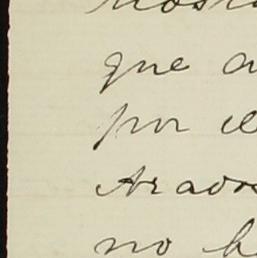 que a
por el
Arados
no h